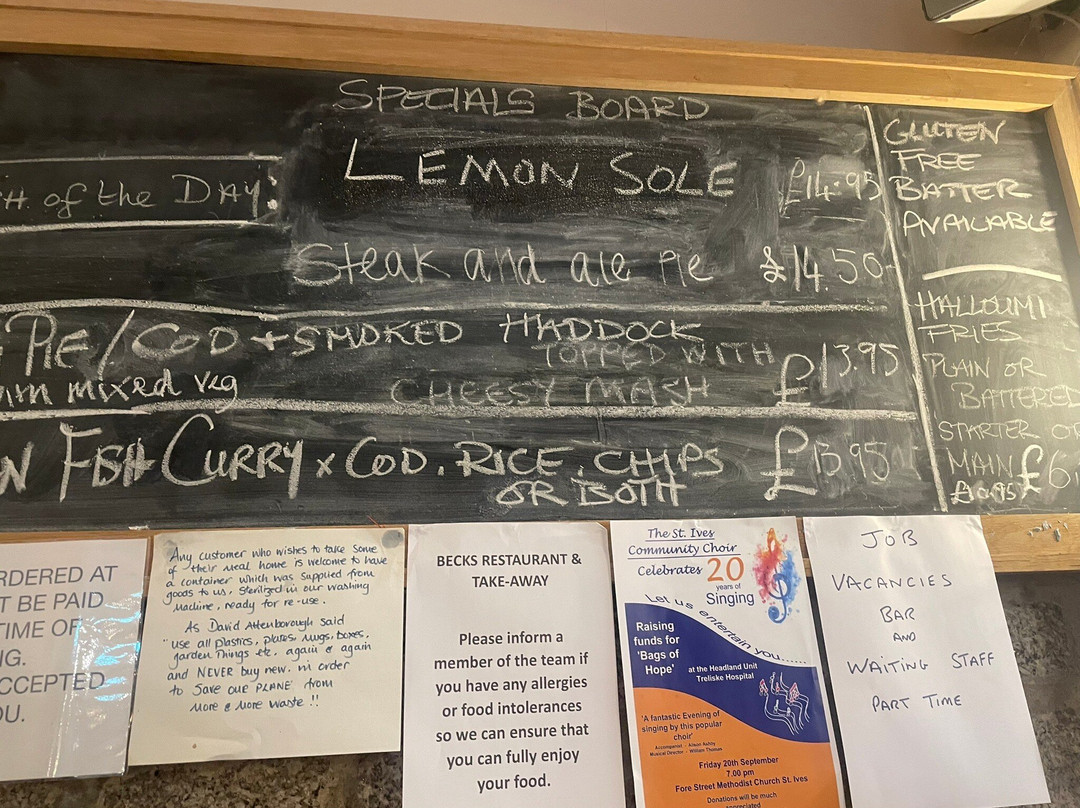 SPECIALS BOARD
H of the DAY:
LEMON SOLE £14.95
Steak and ale Pie £14.50
PIE/COD + SMOKED HADDOCK
TOPPED WITH
mixed veg
CHEESY MASH £13.95
FISH CURRY x COD. RICE. CHIPS
OR BOTH
£13.95
GLUTEN
FREE
BATTER
AVAILABLE
HALLOUMI
FRIES
PLAIN OR
BATTERED
STARTER OR
MAIN £6
RDERED AT
T BE PAID
TIME OF
NG.
CCEPTED
OU.
Any customer who wishes to take some
of their meal home is welcome to have
a container which was supplied from
goods to us, sterilized in our washing
machine, ready for re-use.
As David Attenborough said
"use all plastics, plates, mugs, boxes,
garden things etc. again & again
and NEVER buy new. in order
to save our PLANE from
more & more waste !!
BECKS RESTAURANT &
TAKE-AWAY
Please inform a
member of the team if
you have any allergies
or food intolerances
so we can ensure that
you can fully enjoy
your food.
The St. Ives
Community Choir
Celebrates 20
years of
Singing
Let us entertain you......
Raising
funds for
'Bags of
Hope'
at the Headland Unit
Treliske Hospital
'A fantastic Evening of
singing by this popular
choir'
Accompanist - Alison Ashby
Musical Director - William Thomas
Friday 20th September
7.00 pm
Fore Street Methodist Church St. Ives
Donations will be much
appreciated
JOB
VACANCIES
BAR
AND
WAITING STAFF
PART TIME